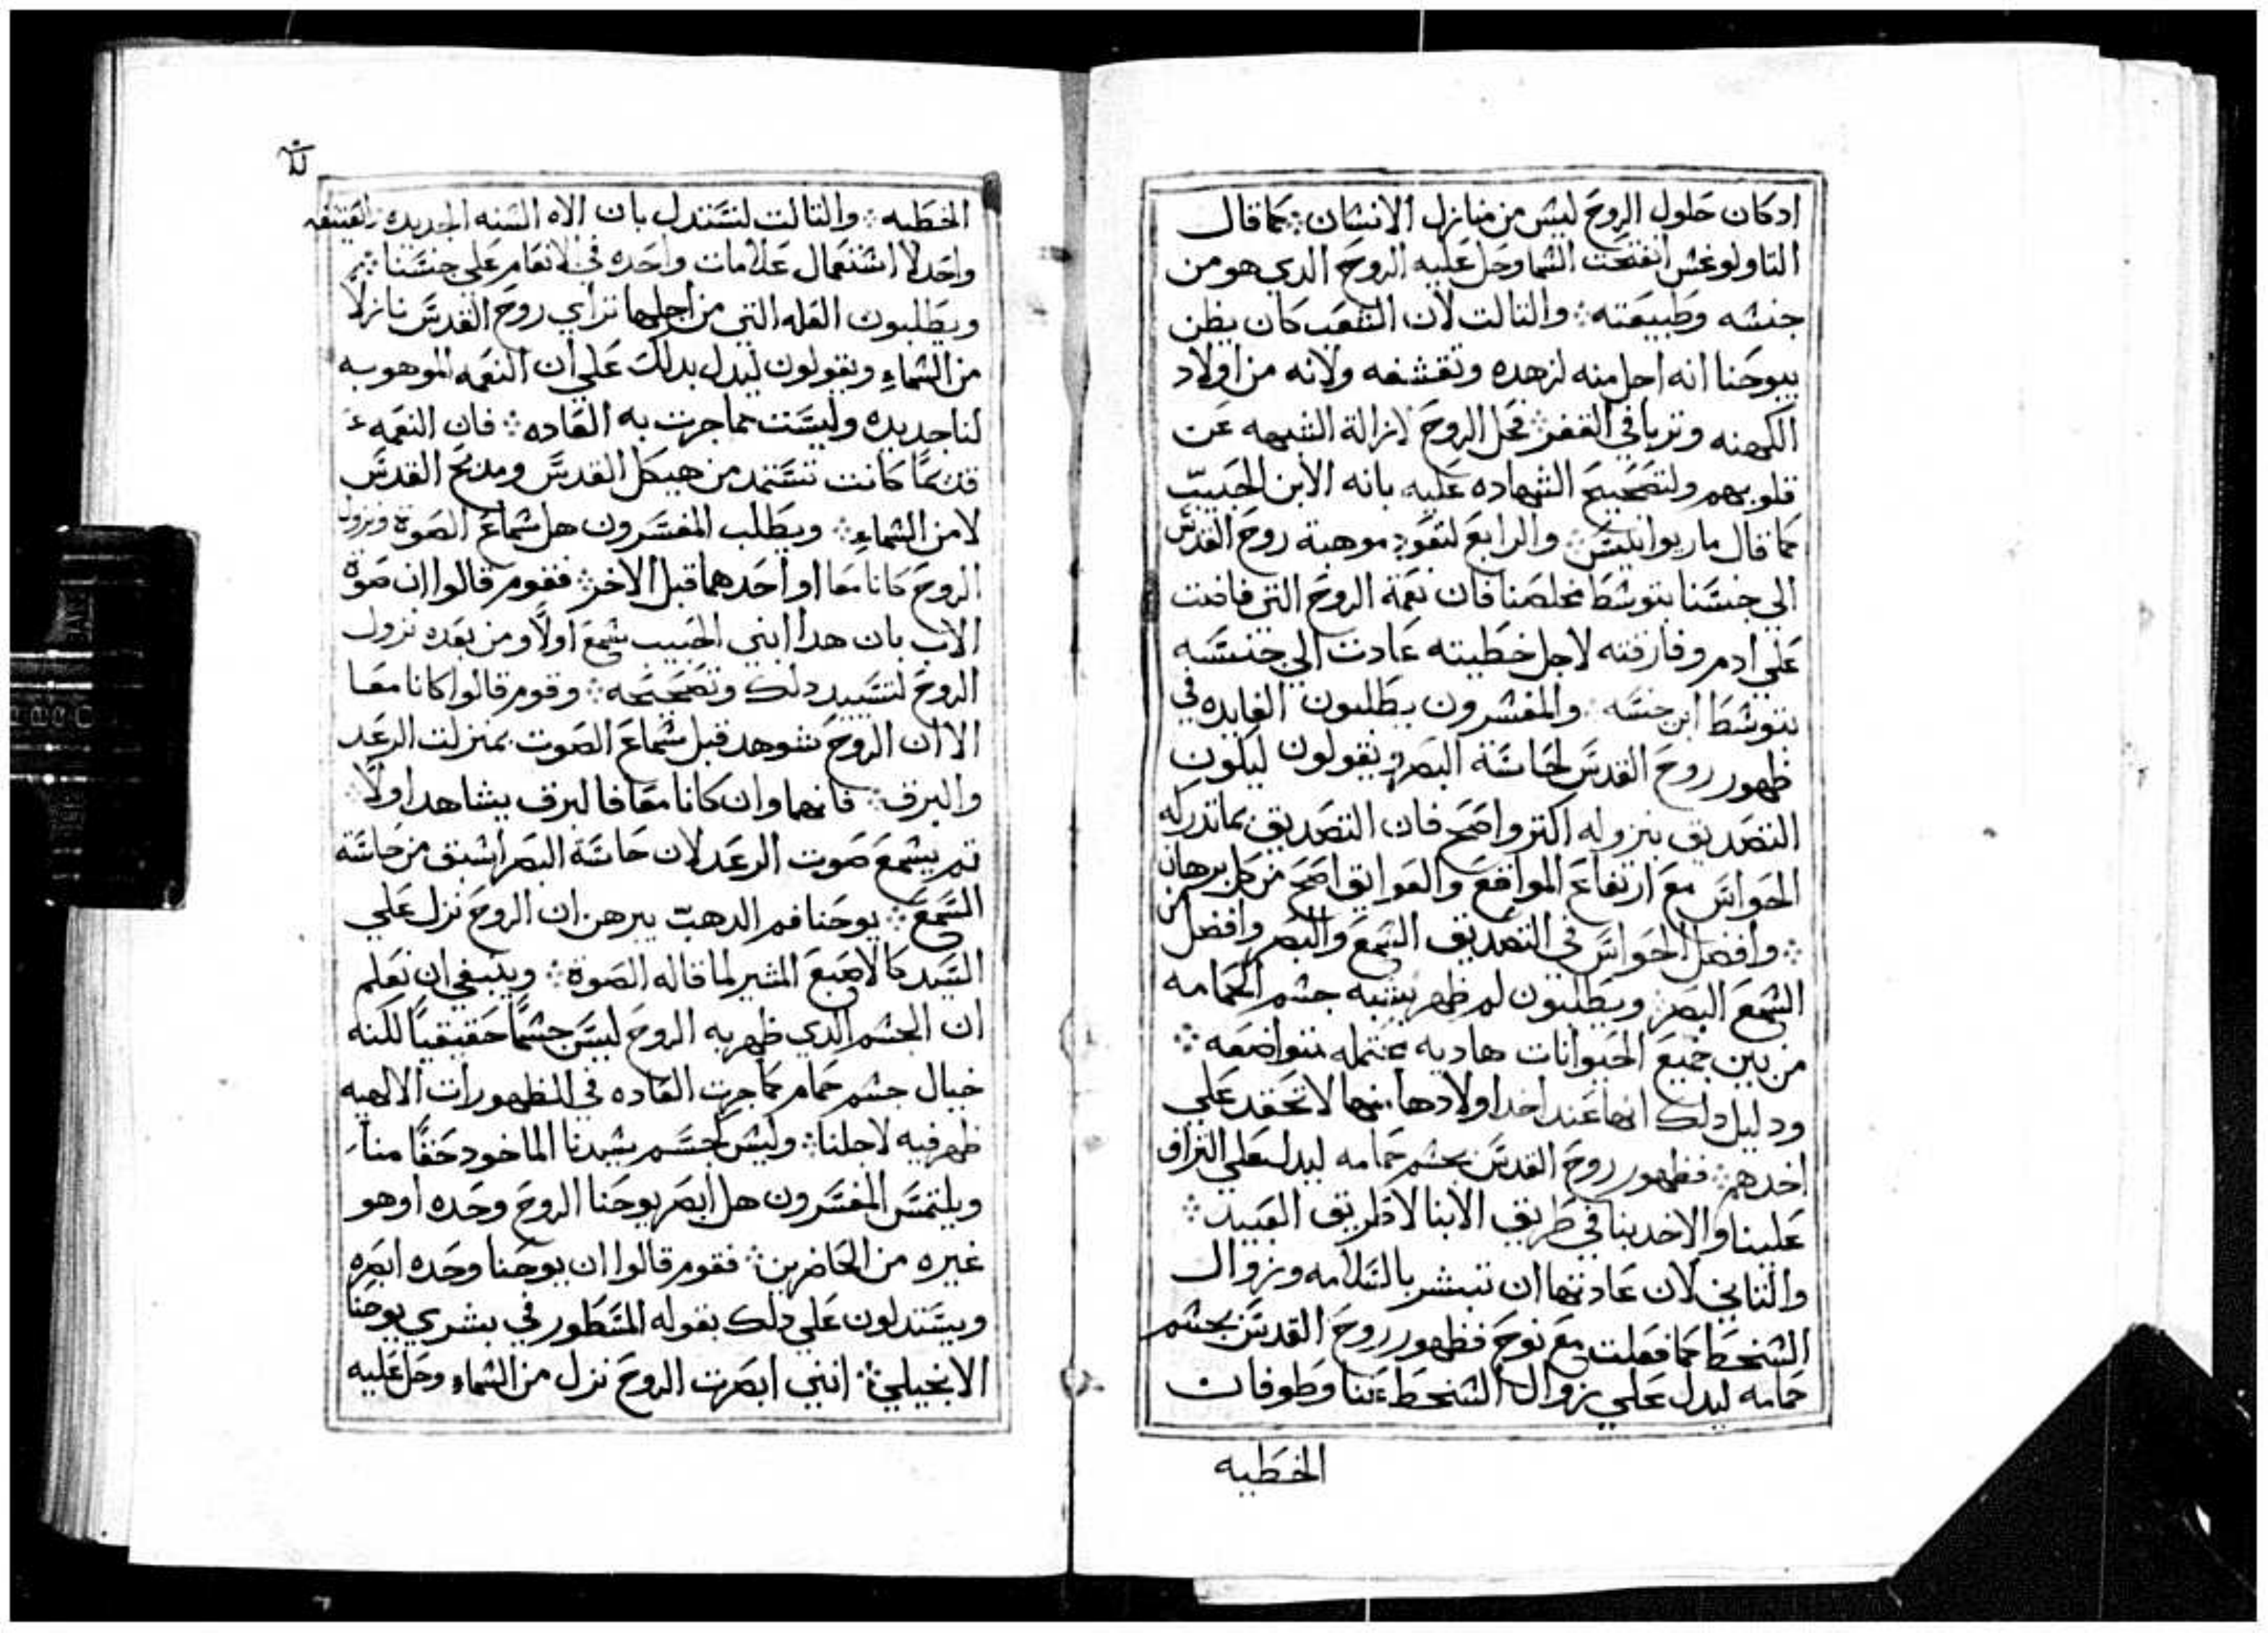 ادكان حلول الروح ليس من منازل الانسان ܀ كما قال
التاولوغس انفتحت السما وحل عليه الروح الدي هو من
جنسه وطبيعته ܀ والتالت لان الشعب كان يظن
بيوحنا انه اجل منه لزهده وتقشفه ولانه من اولاد
الكهنه وتربا في القفر ܀ فحل الروح لازالة الشبهه عن
قلوبهم ولتصحيح الشهاده عليه بانه الابن الحبيب
كما قال ماريوانيس ܀ والرابع لتعود موهبة روح القدس
الي جنسنا بتوسط مخلصنا فان نعمة الروح التي فاضت
علي ادم وفارقته لاجل خطيته عادت الي جنسه
بتوسط ابن جنسه ܀ والمفسرون يطلبون الفايده في
ظهور روح القدس لحاسة البصر ويقولون ليكون
التصديق بنزوله اكتر واصح فان التصديق بما تدركه
الحواس مع ارتفاع الموانع والعوايق اصح من كل برهان
܀ وافضل الحواس في التصديق السمع والبصر وافضل من
السمع البصر ܀ ويطلبون لم ظهر بشبه جسم الحمامه
من بين جميع الحيوانات هاديه محتمله متواضعه ܀
ودليل دلك انها عند اخد اولادها منها لا تحقد علي
اخدهم ܀ فظهور روح القدس بجسم حمامه ليدل علي التراف
علينا والاخد بنا في طريق الابنا لا طريق العبيد ܀
والتاني لان عادتها ان تبشر بالسلامه وزوال
السخط كما فعلت مع نوح فظهور روح القدس بجسم
حمامه ليدل علي زوال السخط عنا وطوفان
الخطيه
الخطيه ܀ والتالت لنستدل بان الاه السنه الجديده والعتيقه
واحد لا استعمال علامات واحده في الانعام علي جنسنا ܀
ويطلبون العله التي من اجلها تراي روح القدس نازلا
من السماء ويقولون ليدل بدلك علي ان النعمه الموهوبه
لنا جديده وليست مما جرت به العاده ܀ فان النعمه
قديمًا كانت تستمد من هيكل القدس ومدبح القدس
لا من السماء ܀ ويطلب المفسرون هل سماع الصوة ونزول
الروح كانا معا او احدهما قبل الاخر ܀ فقوم قالوا ان صوة
الاب بان هدا ابني الحبيب سمع اولًا ومن بعده نزول
الروح لتسييد دلك وتصحيحه ܀ وقوم قالوا كانا معا
الا ان الروح شوهد قبل سماع الصوت بمنزلت الرعد
والبرق ܀ فانهما وان كانا معا فالبرق يشاهد اولًا ܀
تم يسمع صوت الرعد لان حاسة البصر اسبق من حاسة
السمع ܀ يوحنا فم الدهب يبرهن ان الروح نزل علي
السيد كالاصبع المشير لما قاله الصوة ܀ وينبغي ان نعلم
ان الجسم الدي ظهر به الروح ليس جسمًا حقيقيًا لكنه
خيال جسم حمام كما جرت العاده في الظهورات الالهيه
ظهر فيه لاجلنا ܀ وليس كجسم سيدنا الماخود حقًا منا
ويلتمس المفسرون هل ابصر يوحنا الروح وحده او هو
غيره من الحاضرين ܀ فقوم قالوا ان يوحنا وحده ابصره
ويستدلون علي دلك بقوله المسطور في بشري يوحنا
الانجيلي ܀ انني ابصرت الروح نزل من السماء وحل عليه